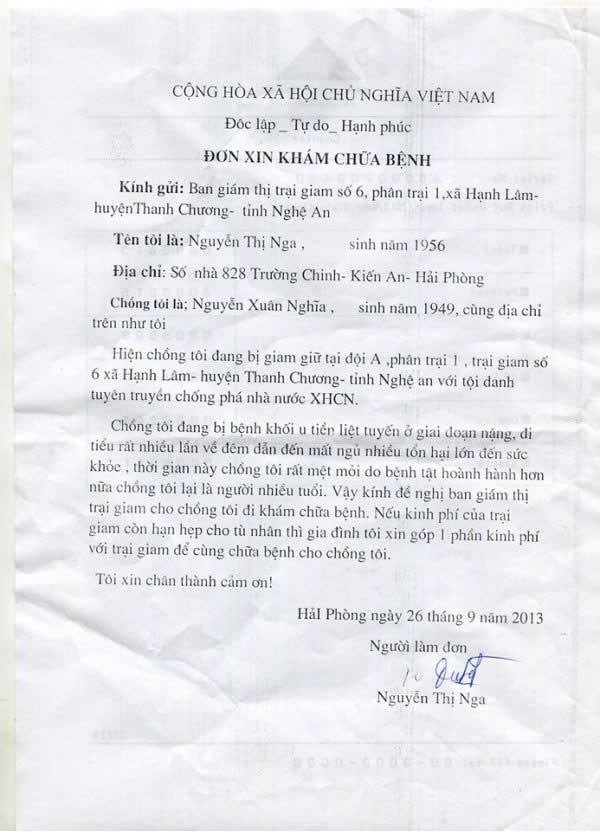 CỘNG HÒA XÃ HỘI CHỦ NGHĨA VIỆT NAM
Đôc lập _ Tự do_ Hạnh phúc
ĐƠN XIN KHÁM CHỮA BỆNH
Kính gửi: Ban giám thị trại giam số 6, phân trại 1,xã Hạnh Lâm-
huyệnThanh Chương- tỉnh Nghệ An
Tên tôi là: Nguyễn Thị Nga , sinh năm 1956
Địa chỉ: Số nhà 828 Trường Chinh- Kiến An- Hải Phòng
Chồng tôi là; Nguyễn Xuân Nghĩa , sinh năm 1949, cùng địa chỉ
trên như tôi
Hiện chồng tôi đang bị giam giữ tại đội A ,phân trại 1 , trại giam số
6 xã Hạnh Lâm- huyện Thanh Chương- tỉnh Nghệ an với tội danh
tuyên truyền chống phá nhà nước XHCN.
Chồng tôi đang bị bệnh khối u tiền liệt tuyến ở giai đoạn nặng, đi
tiểu rất nhiều lần về đêm dẫn đến mất ngủ nhiều tổn hại lớn đến sức
khỏe , thời gian này chồng tôi rất mệt mỏi do bệnh tật hoành hành hơn
nữa chồng tôi lại là người nhiều tuổi. Vậy kính đề nghị ban giám thị
trại giam cho chồng tôi đi khám chữa bệnh. Nếu kinh phí của trại
giam còn hạn hẹp cho tù nhân thì gia đình tôi xin góp 1 phần kinh phí
với trại giam để cùng chữa bệnh cho chồng tôi.
Tôi xin chân thành cảm ơn!
HảI Phòng ngày 26 tháng 9 năm 2013
Người làm đơn
Nguyễn Thị Nga